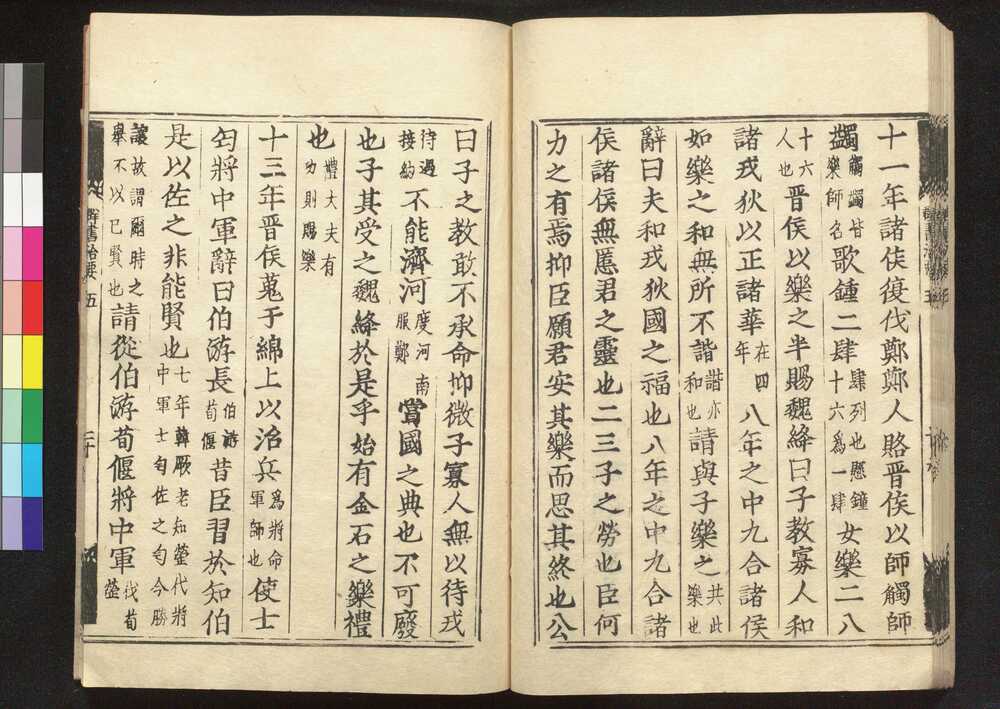 十一年諸侯復伐鄭鄭人賂晉侯以師觸師
蠲觸蠲皆樂師名歌鍾二肆肆列也懸鐘十六爲一肆女樂二八
十六人也晉侯以樂之半賜魏絳曰子教寡人和
諸戎狄以正諸華在四年八年之中九合諸侯
如樂之和無所不諧諧亦和也請與子樂之共此樂也
辭曰夫和戎狄國之福也八年之中九合諸
侯諸侯無慝君之靈也二三子之勞也臣何
力之有焉抑臣願君安其樂而思其終也公
曰子之教敢不承命抑微子寡人無以待戎
待遇接約不能濟河度河南服鄭賞國之典也不可廢
也子其受之魏絳於是乎始有金石之樂禮
也禮大夫有功則賜樂
十三年晉侯蒐于綿上以治兵爲將命軍師也使士
匄將中軍辭曰伯游長伯游荀偃昔臣習於知伯
是以佐之非能賢也七年韓厥老知罃代將中軍士匄佐之匄今勝
讓故謂爾時之舉不以己賢也請從伯游荀偃將中軍代荀罃
群書治要 五
二十